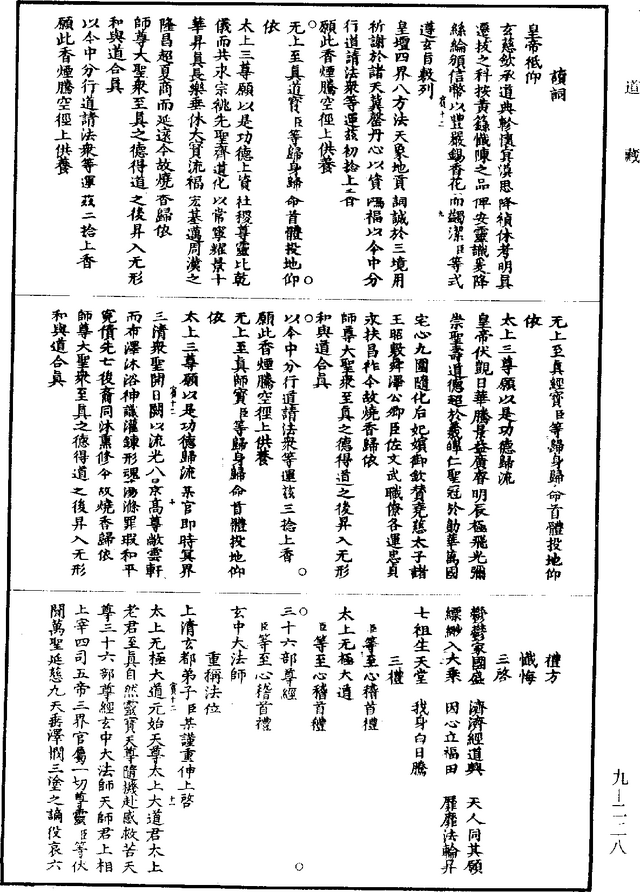 道藏
讀詞
皇帝祇仰
玄慈欽承道典軫懷冥漠思降禎休考明真
遷拔之科按黃籙懺陳之品俾安靈識爰降
絲綸頒信幣以豐嚴錫香花而蠲潔臣等式
遵玄旨數列
皇壇四界八方法天象地頁詞誠於三境用
祈謝於諸天冀罄丹心以資鴻福以今中分
行道請法衆等運茲初捻上香
願此香煙騰空徑上供養
无上至真道寶臣等歸身歸命首體投地仰
依
太上三尊願以是功德上資社稷尊靈比乾
儀而共永宗祧先聖齊道化以常寧耀景十
華昇真長樂垂休大寶流福宏基邁周漢之
隆昌超夏商而延遠今故燒香歸依
師尊大聖衆至真之德得道之後昇入无形
和與道合真
以今中分行道請法衆等運茲二捻上香
願此香煙騰空徑上供養
无上至真經寶臣等歸身歸命首體投地仰
依
太上三尊願以是功德歸流
皇帝伏觀日華騰景益廣睿明辰極飛光彌
崇聖壽道德超於羲皞仁聖冠於勛華萬國
宅心九圍隨化后妃嬪御欽贊堯慈太子諸
王昭敷舜澤公卿臣佐文武職僚各運忠貞
永扶昌祚今故燒香歸依
師尊大聖衆至真之德得道之後昇入无形
和與道合真
以今中分行道請法衆等運茲三捻上香
願此香煙騰空徑上供養
无上至真師寶臣等歸身歸命首體投地仰
依
太上三尊願以是功德歸流某官即時冥界
三清衆聖開日闕以流光八景高尊敞雲軒
而布澤沐浴神識灌鍊形魂蕩滌罪瑕和平
寃債先亡後裔同沐熏修今故燒香歸依
師尊大聖衆至真之德得道之後昇入无形
和與道合真
禮方
懺悔
三啓
鬱鬱家國盛 濟濟經道興 天人同其願
縹緲入大乘 因心立福田 靡靡法輪昇
七祖生天堂 我身白日騰
三禮
臣等至心稽首禮
太上无極大道
臣等至心稽首禮
三十六部尊經
臣等至心稽首禮
玄中大法師
重稱法位
上清玄都弟子臣某謹重伸上啓
太上无極大道元始天尊太上大道君太上
老君至真自然靈寶天尊隨機赴感救苦天
尊三十六部尊經玄中大法師天師君上相
上宰四司五帝三界官屬一切尊靈臣等伏
聞萬聖延慈九天垂澤憫三塗之謫役哀六
九—二二八